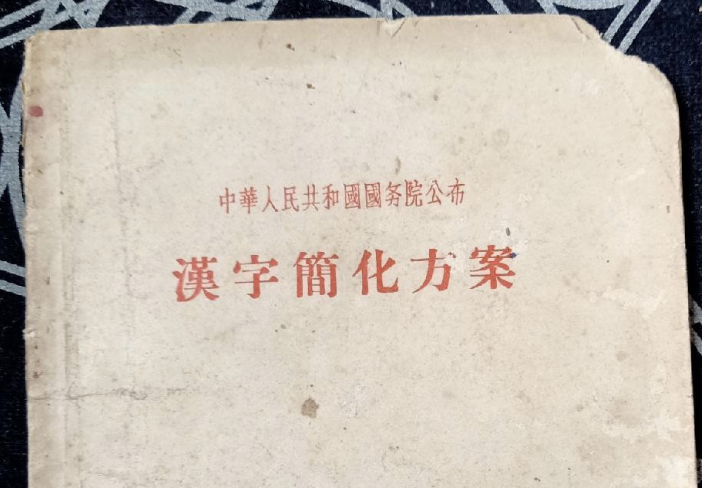 中華人民共和國國务院公布
漢字簡化方案